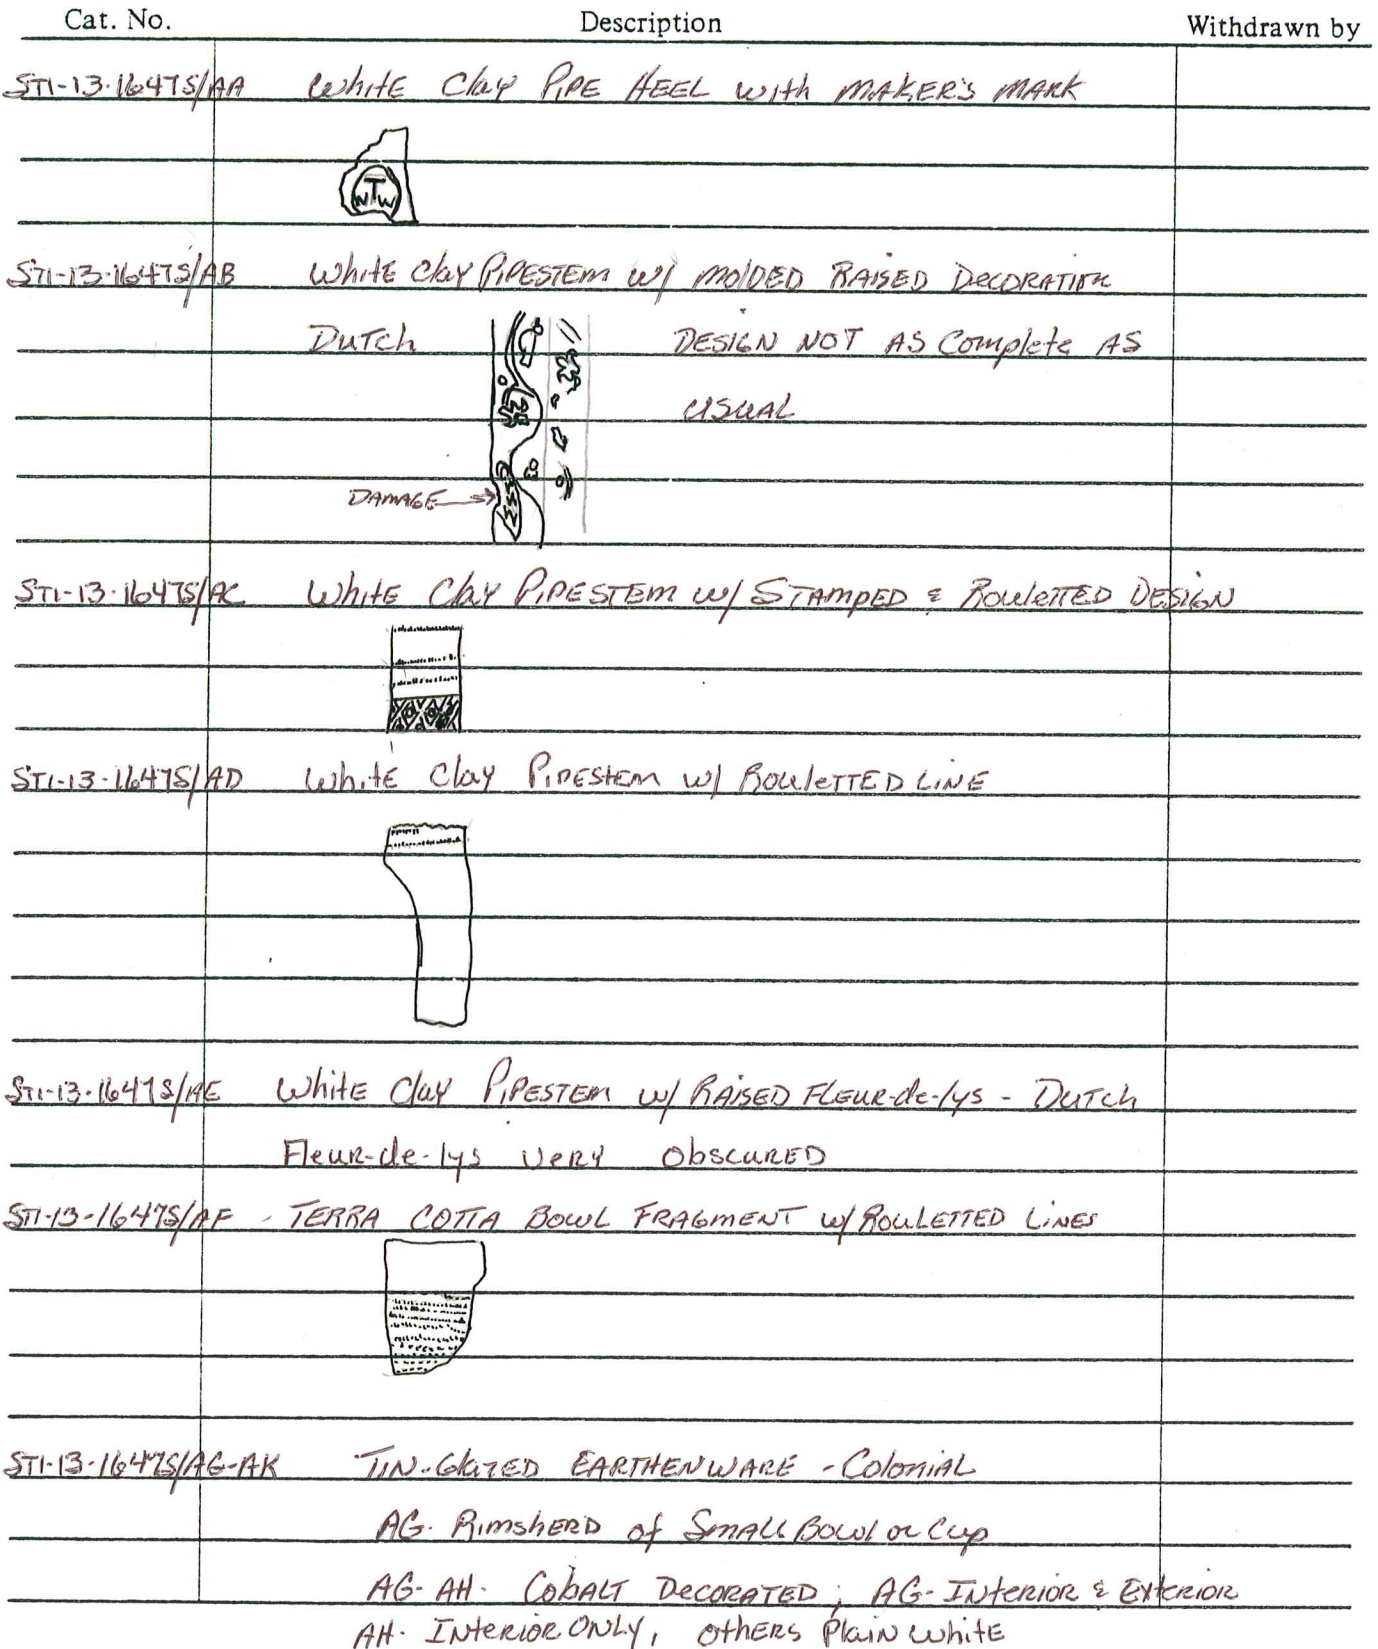 Cat. No. Description Withdrawn by
ST1-13-1647S/AA White Clay PIPE HEEL with MAKER'S MARK
WTW
ST1-13-1647S/AB White Clay PIPESTEM w/ MOLDED RAISED DECORATION
DUTCH DESIGN NOT AS Complete AS
USUAL
DAMAGE →
ST1-13-1647S/AC White Clay PIPESTEM w/ STAMPED & ROULETTED DESIGN
ST1-13-1647S/AD White Clay PIPESTEM w/ ROULETTED LINE
ST1-13-1647S/AE White Clay PIPESTEM w/ RAISED FLEUR-de-lys - DUTCH
Fleur-de-lys VERY ObSCURED
ST1-13-1647S/AF - TERRA COTTA BOWL FRAGMENT w/ ROULETTED LINES
ST1-13-1647S/AG-AK TIN-GlAZED EARTHENWARE - COlONIAL
AG. RIMSHERD of SMALL BOWl or Cup
AG-AH. CObALT DECORATED; AG-INTERIOR & EXTERIOR
AH. INTERIOR ONLY, OTHERS PlaiN WhITE